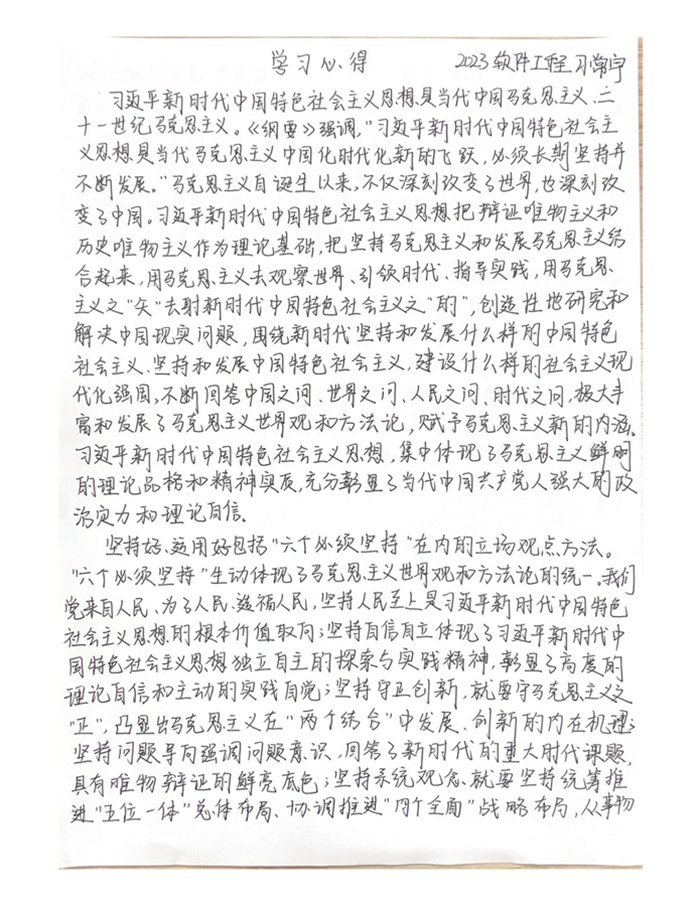 学习心得 2023软件工程 刁常宇
习近平新时代中国特色社会主义思想是当代中国马克思主义、二
十一世纪马克思主义。《纲要》强调,"习近平新时代中国特色社会主
义思想是当代马克思主义中国化时代化新的飞跃,必须长期坚持并
不断发展。"马克思主义自诞生以来,不仅深刻改变了世界,也深刻改
变了中国。习近平新时代中国特色社会主义思想把辩证唯物主义和
历史唯物主义作为理论基础,把坚持马克思主义和发展马克思主义结
合起来,用马克思主义去观察世界、引领时代、指导实践,用马克思
主义之"矢"去射新时代中国特色社会主义之"的",创造性地研究和
解决中国现实问题,围绕新时代坚持和发展什么样的中国特色
社会主义、坚持和发展中国特色社会主义,建设什么样的社会主义现
代化强国,不断回答中国之问、世界之问、人民之问、时代之问,极大丰
富和发展了马克思主义世界观和方法论,赋予马克思主义新的内涵。
习近平新时代中国特色社会主义思想,集中体现了马克思主义鲜明
的理论品格和精神实质,充分彰显了当代中国共产党人强大的政
治定力和理论自信。
坚持好、运用好包括"六个必须坚持"在内的立场观点方法。
"六个必须坚持"生动体现了马克思主义世界观和方法论的统一。我们
党来自人民、为了人民、造福人民,坚持人民至上是习近平新时代中国特色
社会主义思想的根本价值取向;坚持自信自立体现了习近平新时代中
国特色社会主义思想独立自主的探索与实践精神,彰显了高度的
理论自信和主动的实践自觉;坚持守正创新,就要守马克思主义之
"正",凸显出马克思主义在"两个结合"中发展、创新的内在机理;
坚持问题导向强调问题意识,回答了新时代的重大时代课题,
具有唯物辩证的鲜亮底色;坚持系统观念,就要坚持统筹推
进"五位一体"总体布局、协调推进"四个全面"战略布局,从事物